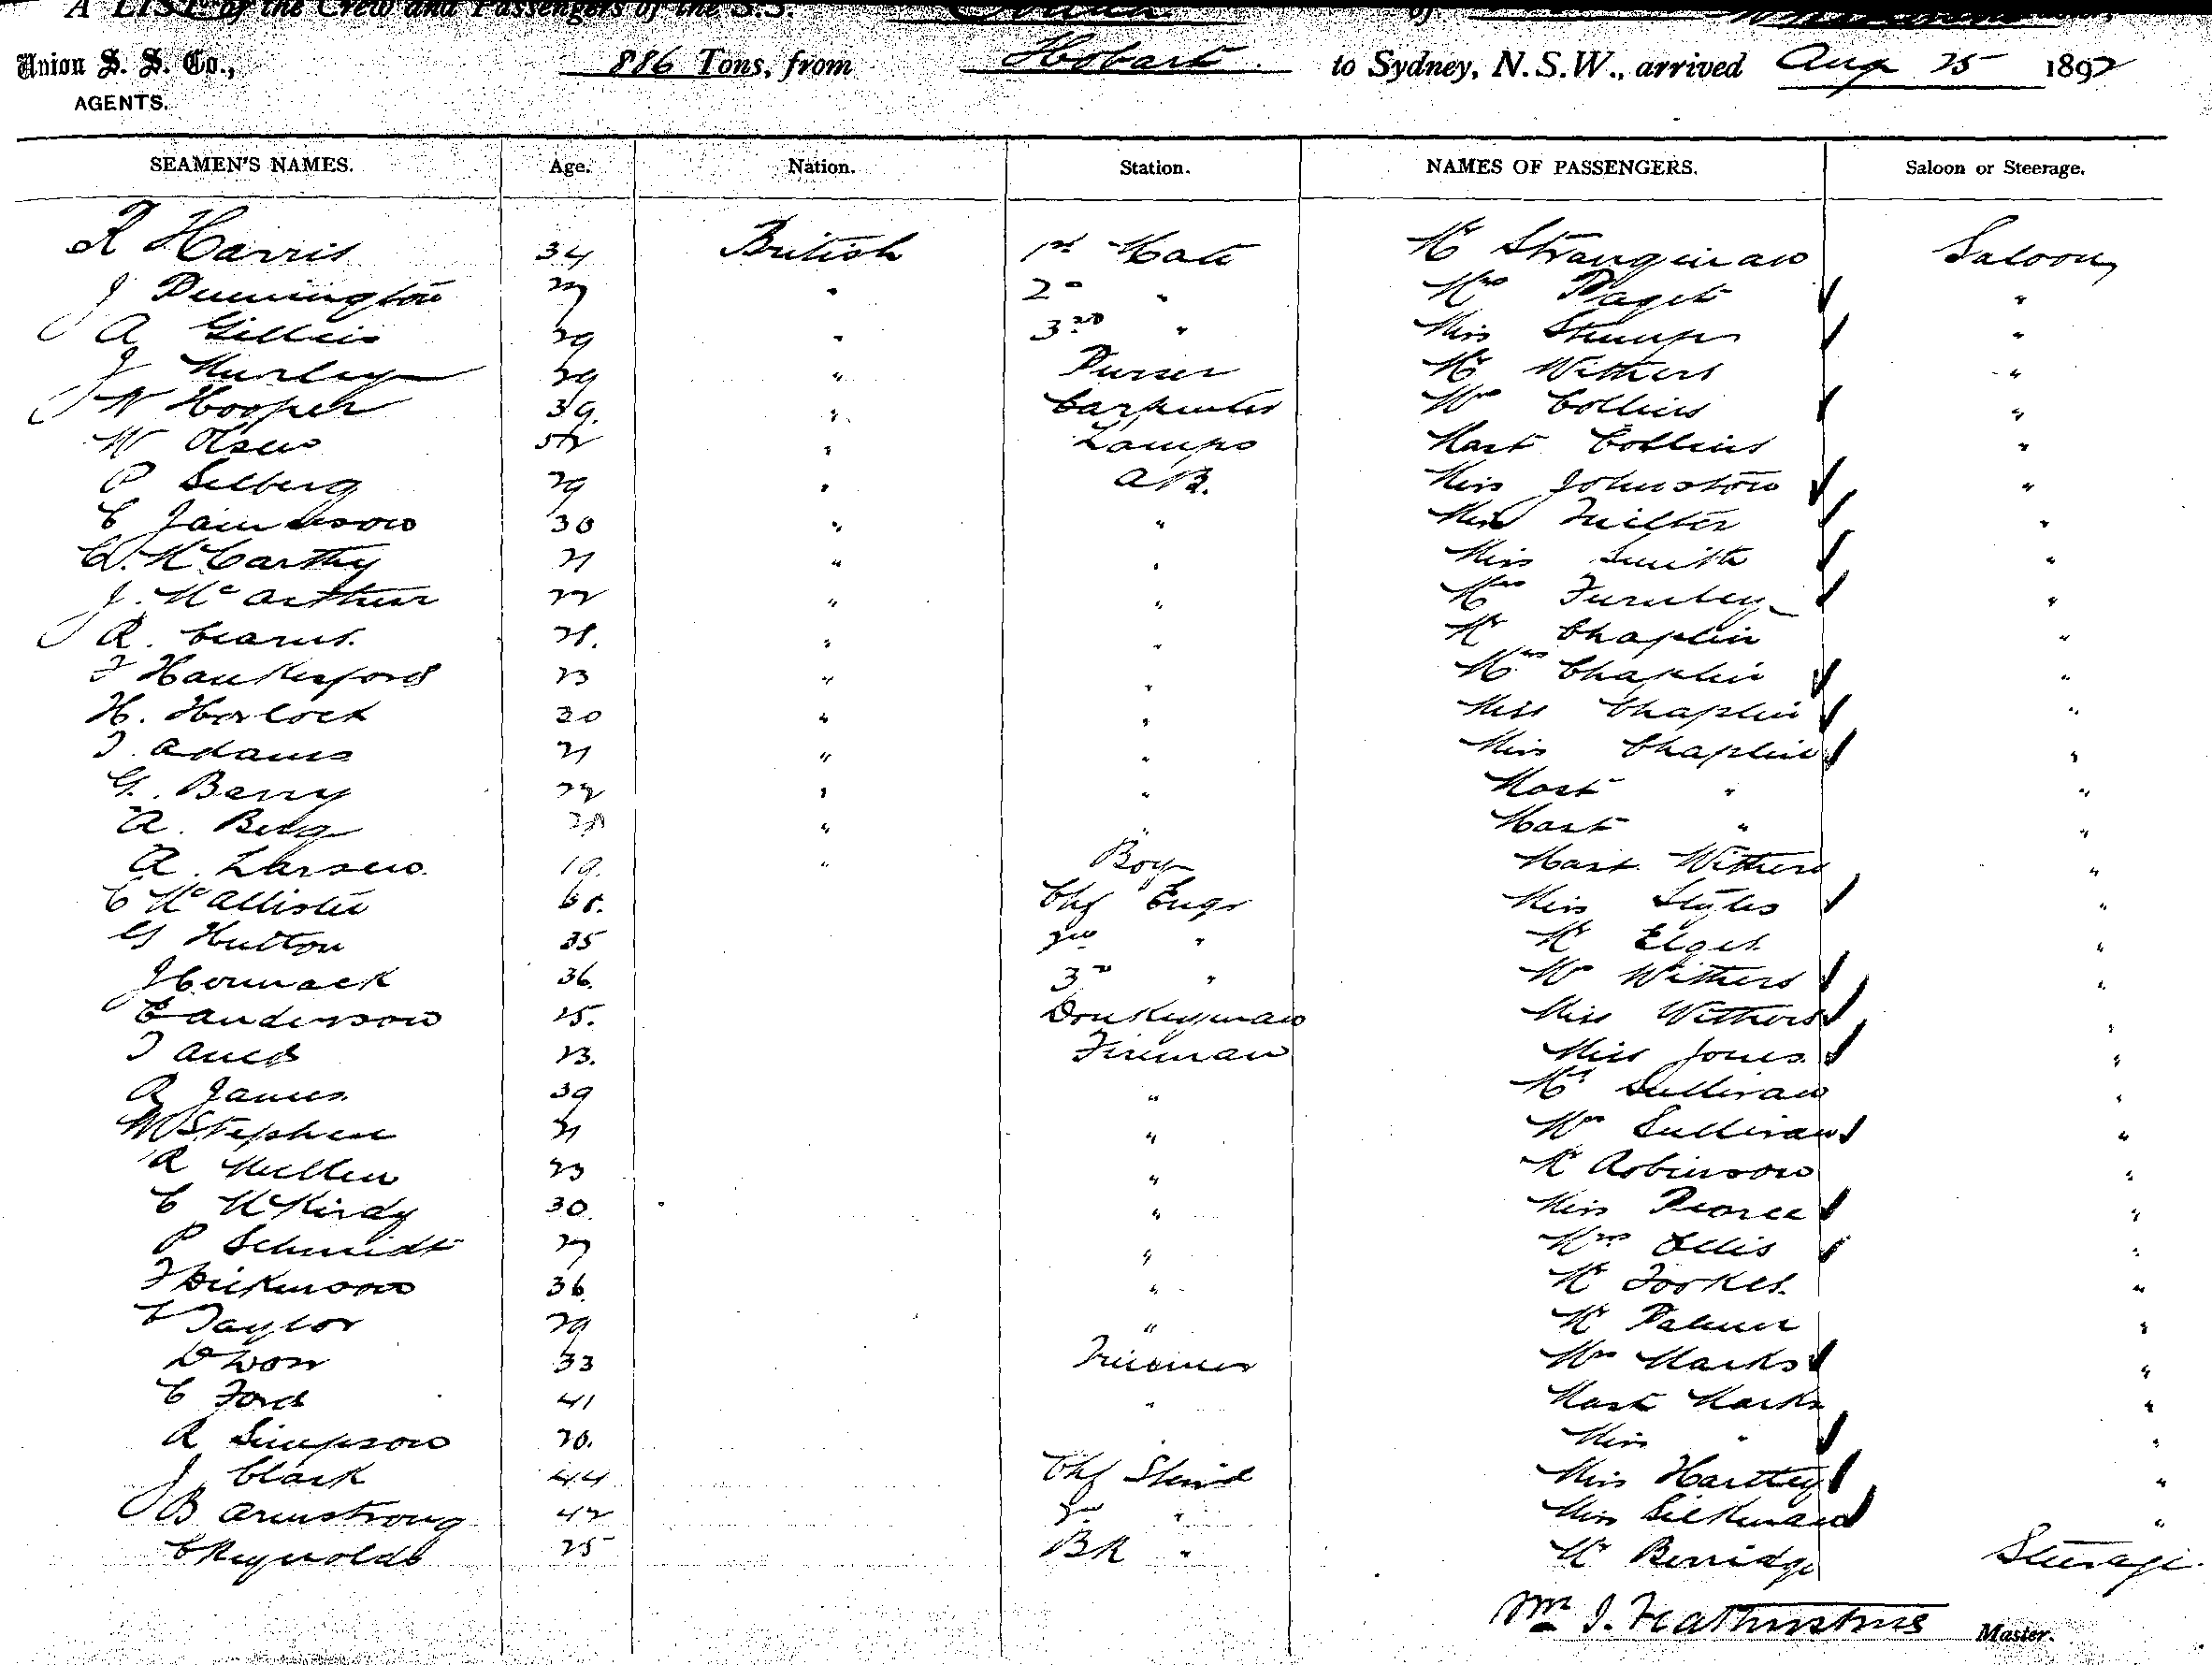 A LIST of the Crew and Passengers of the S.S. of
Union S. S. Co., 886 Tons, from Hobart to Sydney, N.S.W., arrived Aug 25 1892
AGENTS.
SEAMEN'S NAMES. Age. Nation. Station. NAMES OF PASSENGERS. Saloon or Steerage.
R Harris 34 British 1st Mate Mr Strangman Saloon
J Pennington 27 " 2nd " Mrs Paget "
A Gillies 29 " 3rd " Miss Stump "
J Hurley 29 " Purser Mr Withers "
W Hooper 39. " Carpenter Mrs Collins "
W Olsen 52 " Lamps Mast Collins "
P Selberg 29 " A.B. Miss Johnston "
C Jamieson 30 " " Miss "
C. McCarthy 21 " " Miss Smith "
J. McArthur 22 " " Mrs Furnley "
R. Cearns. 28. " " Mr Chaplin "
F Hankesford 23 " " Mrs Chaplin "
H. Horlock 30 " " Miss Chaplin "
T. Adams 21 " " Miss Chaplin "
G. Berry 22 " " Mast " "
A. Berg " " Mast " "
A. Larsen. 19. " Boy Mast. Withers "
C McAllister Chf Engr Miss Styles "
G Hutton 35 2nd " Mr "
J Cormack 36. 3rd " Mrs Withers "
C Anderson 25. Donkeyman Miss Withers "
T 23. Fireman Miss Jones "
R James 39 " Mr Sullivan "
W Stephen 21 " Mrs Sullivan "
R Mullen 23 " Mr Robinson "
C McKirdy 30. " Miss Pearce "
P Schmidt 27 " Mrs Ellis "
F Dickinson 36. " Mr "
C Taylor 29 " Mr Palmer "
D 33 Trimmer Mrs Marks "
C Ford 41 " Mast Marks "
R Simpson 26. " Miss " "
J Clark 44 Chf Stewd Miss Hartley "
B Armstrong 42 2nd " Miss "
C Reynolds 25 BR " Mr Berridge Steerage.
Wm J. Featherstone Master.